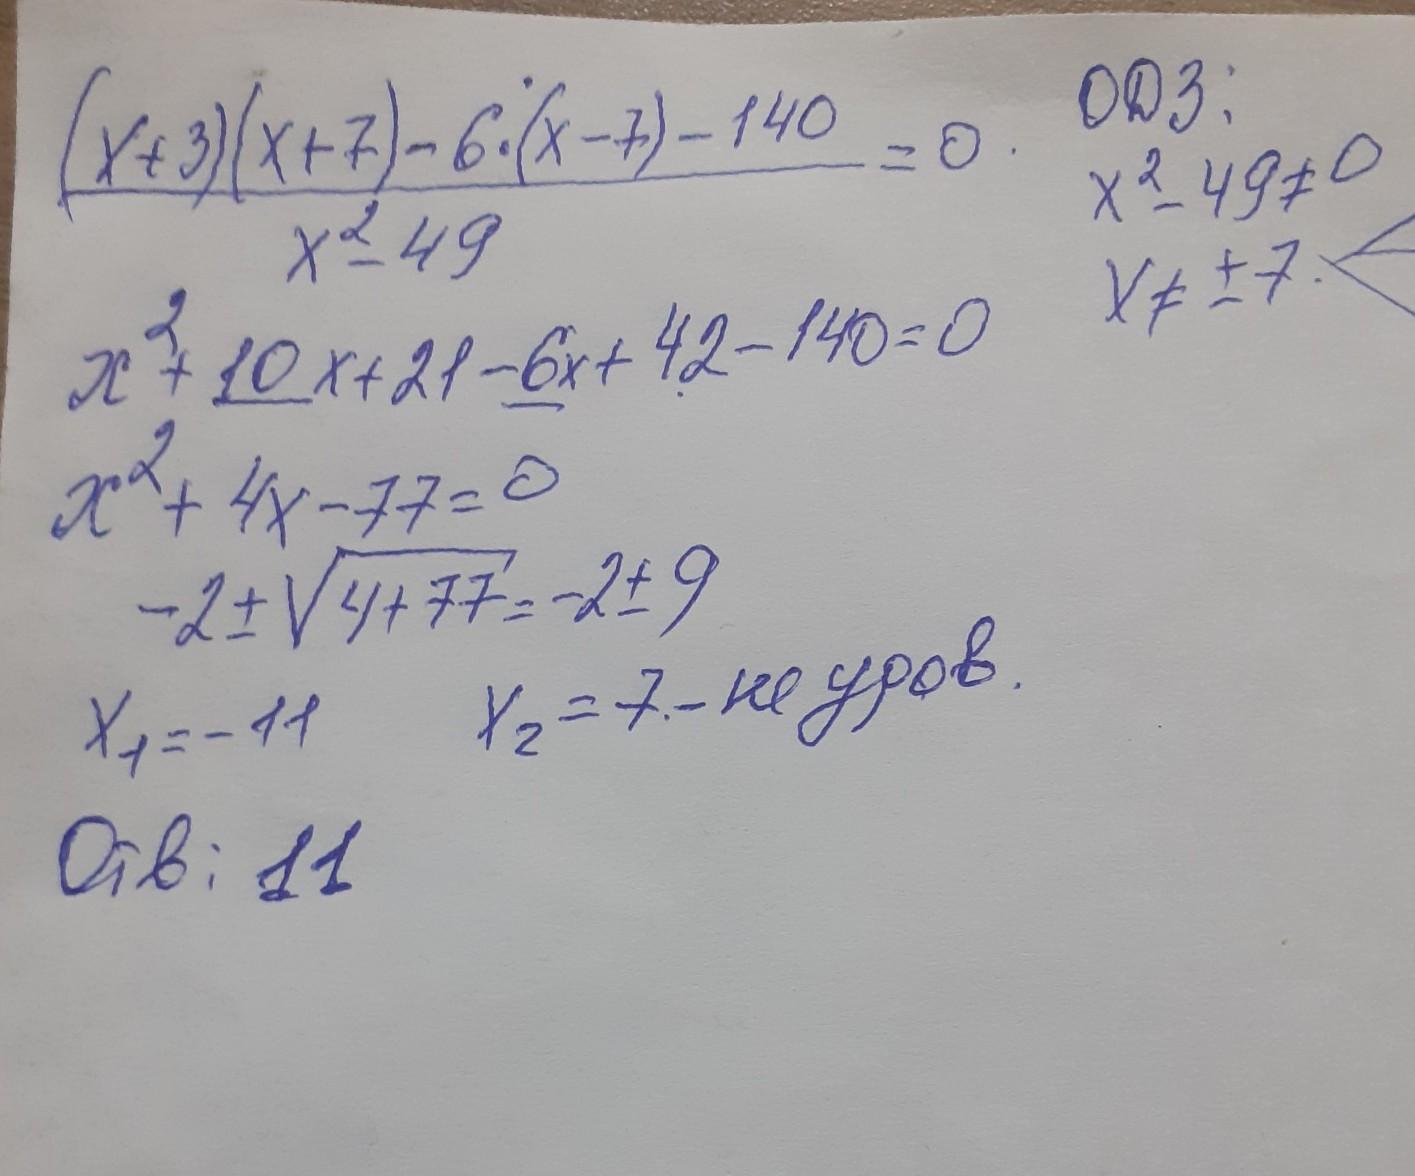 (x+3)(x+7)-6·(x-7)-140 = 0.
x²-49
ОДЗ:
x²-49≠0
x≠±7.
x²+10x+21-6x+42-140=0
x²+4x-77=0
-2±√4+77=-2±9
x₁=-11 x₂=7.-не удов.
Отв: 11